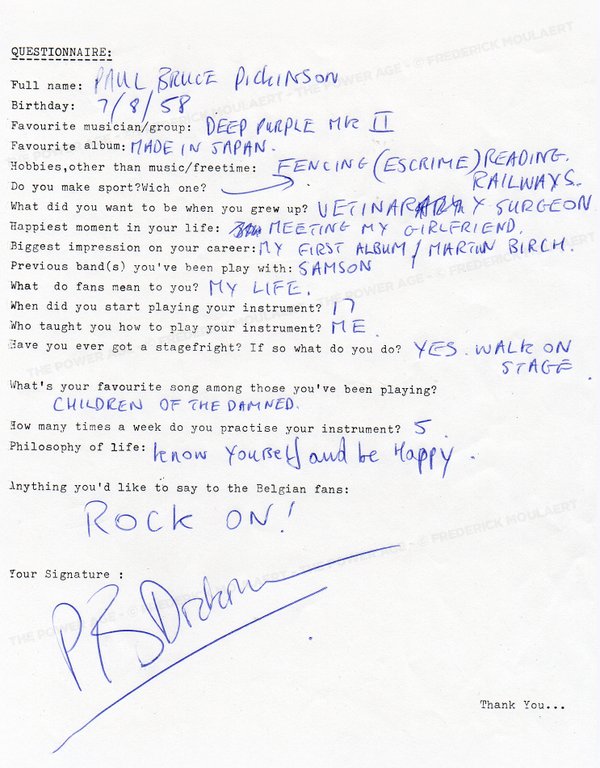 QUESTIONNAIRE:
Full name: PAUL BRUCE DICKINSON
Birthday: 7/8/58
Favourite musician/group: DEEP PURPLE MK II
Favourite album: MADE IN JAPAN.
Hobbies,other than music/freetime: FENCING (ESCRIME) READING.
RAILWAYS.
Do you make sport?Wich one?
What did you want to be when you grew up? VETINARARY SURGEON
Happiest moment in your life: MEETING MY GIRLFRIEND.
Biggest impression on your career: MY FIRST ALBUM / MARTIN BIRCH.
Previous band(s) you've been play with: SAMSON
What do fans mean to you? MY LIFE.
When did you start playing your instrument? 17
Who taught you how to play your instrument? ME
Have you ever got a stagefright? If so what do you do? YES. WALK ON
STAGE
What's your favourite song among those you've been playing?
CHILDREN OF THE DAMNED.
How many times a week do you practise your instrument? 5.
Philosophy of life: know YouRself and be Happy.
Anything you'd like to say to the Belgian fans:
ROCK ON!
Your Signature :
P B Dickinson
Thank You...
THE POWER AGE - © FREDERICK MOULAERT